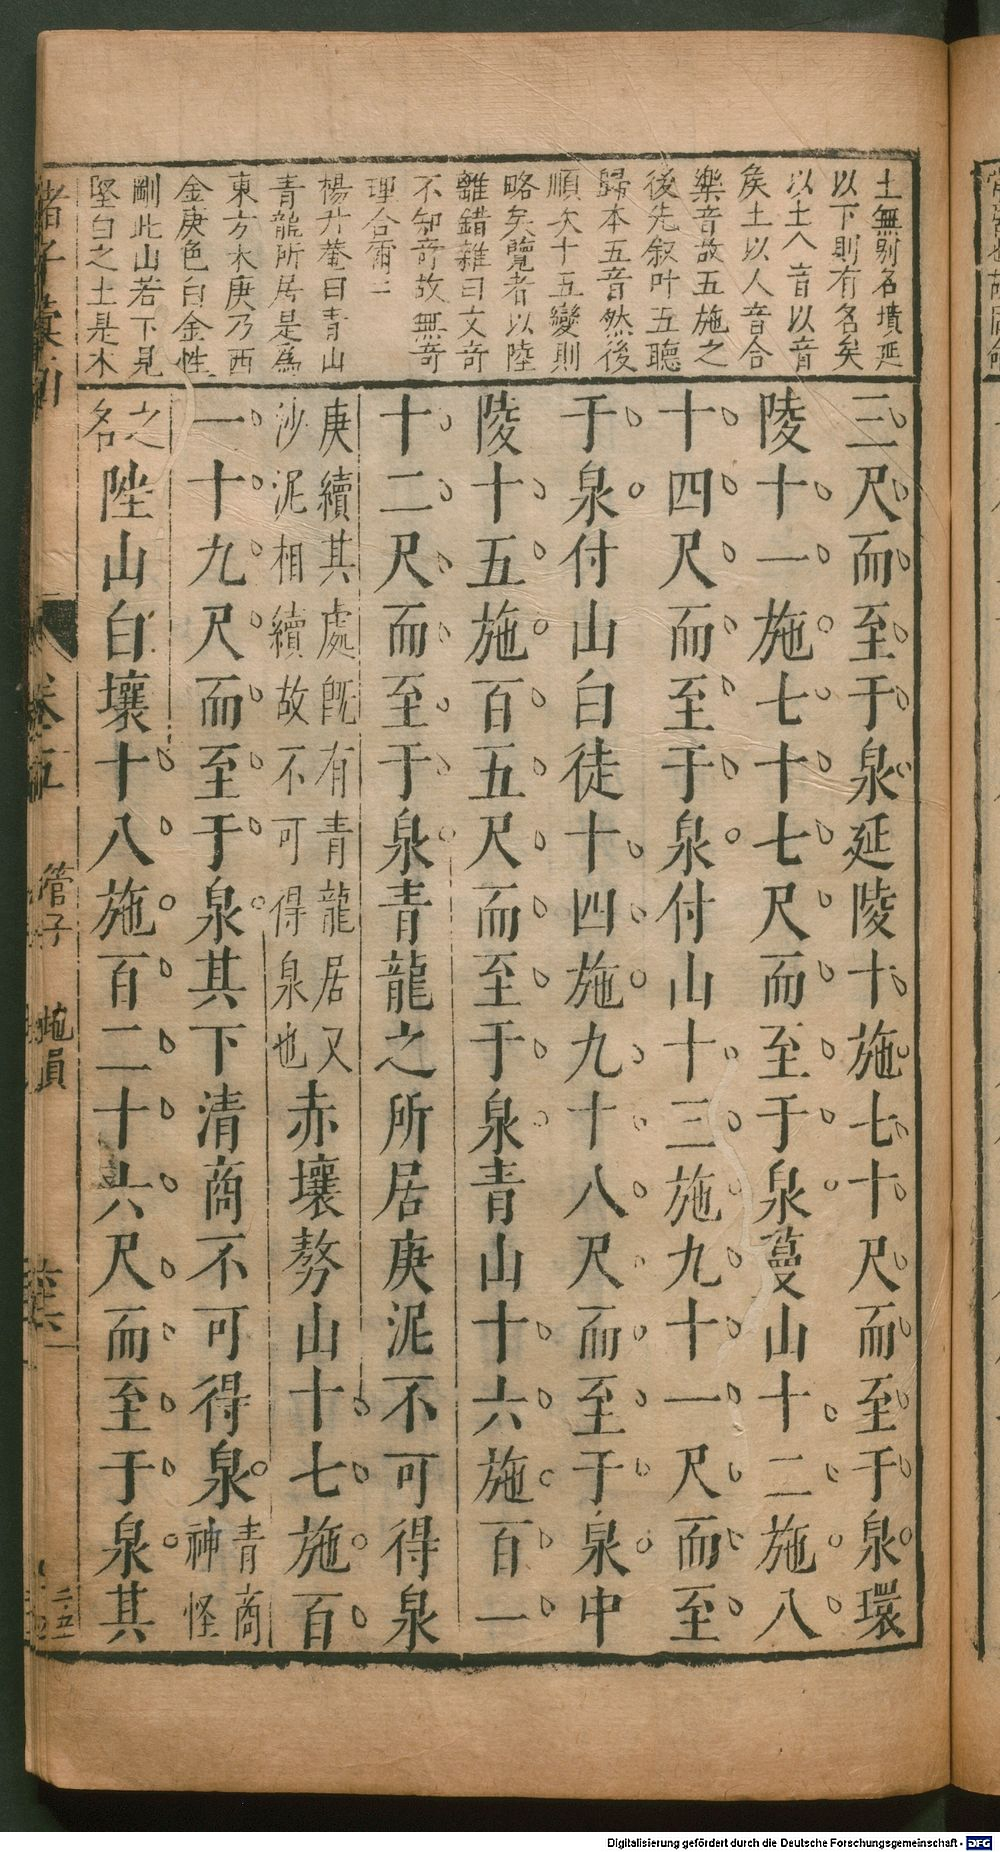 土無别名墳延
以下則有名矣
以土入音以音
矣土以人音合
樂音故五施之
後先叙叶五聽
歸本五音然後
順次十五變則
略矣覽者以陸
離錯雜曰文竒
不知竒故無竒
理合爾二
楊升菴曰青山
青龍所居是為
東方木庚乃西
金庚色白金性
剛此山若下見
堅白之土是木
三尺而至于泉延陵十施七十尺而至于泉環
陵十一施七十七尺而至于泉蔓山十二施八
十四尺而至于泉付山十三施九十一尺而至
于泉付山白徒十四施九十八尺而至于泉中
陵十五施百五尺而至于泉青山十六施百一
十二尺而至于泉青龍之所居庚泥不可得泉
庚續其處旣有青龍居又
沙泥相續故不可得泉也
赤壤㟼山十七施百
一十九尺而至于泉其下清商不可得泉
青商
神怪
之
名
陞山白壤十八施百二十六尺而至于泉其
諸子彙
卷五
管子
地員
二五
Digitalisierung gefördert durch die Deutsche Forschungsgemeinschaft - DFG